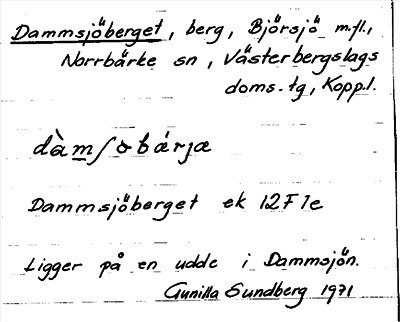 Dammsjöberget, berg, Björsjö m.fl.,
Norrbärke sn, Västerbergslags
doms. tg, Kopp.l.
dàmʃɔbǽrjæ
Dammsjöberget ek 12F1e
Ligger på en udde i Dammsjön.
Gunilla Sundberg 1971